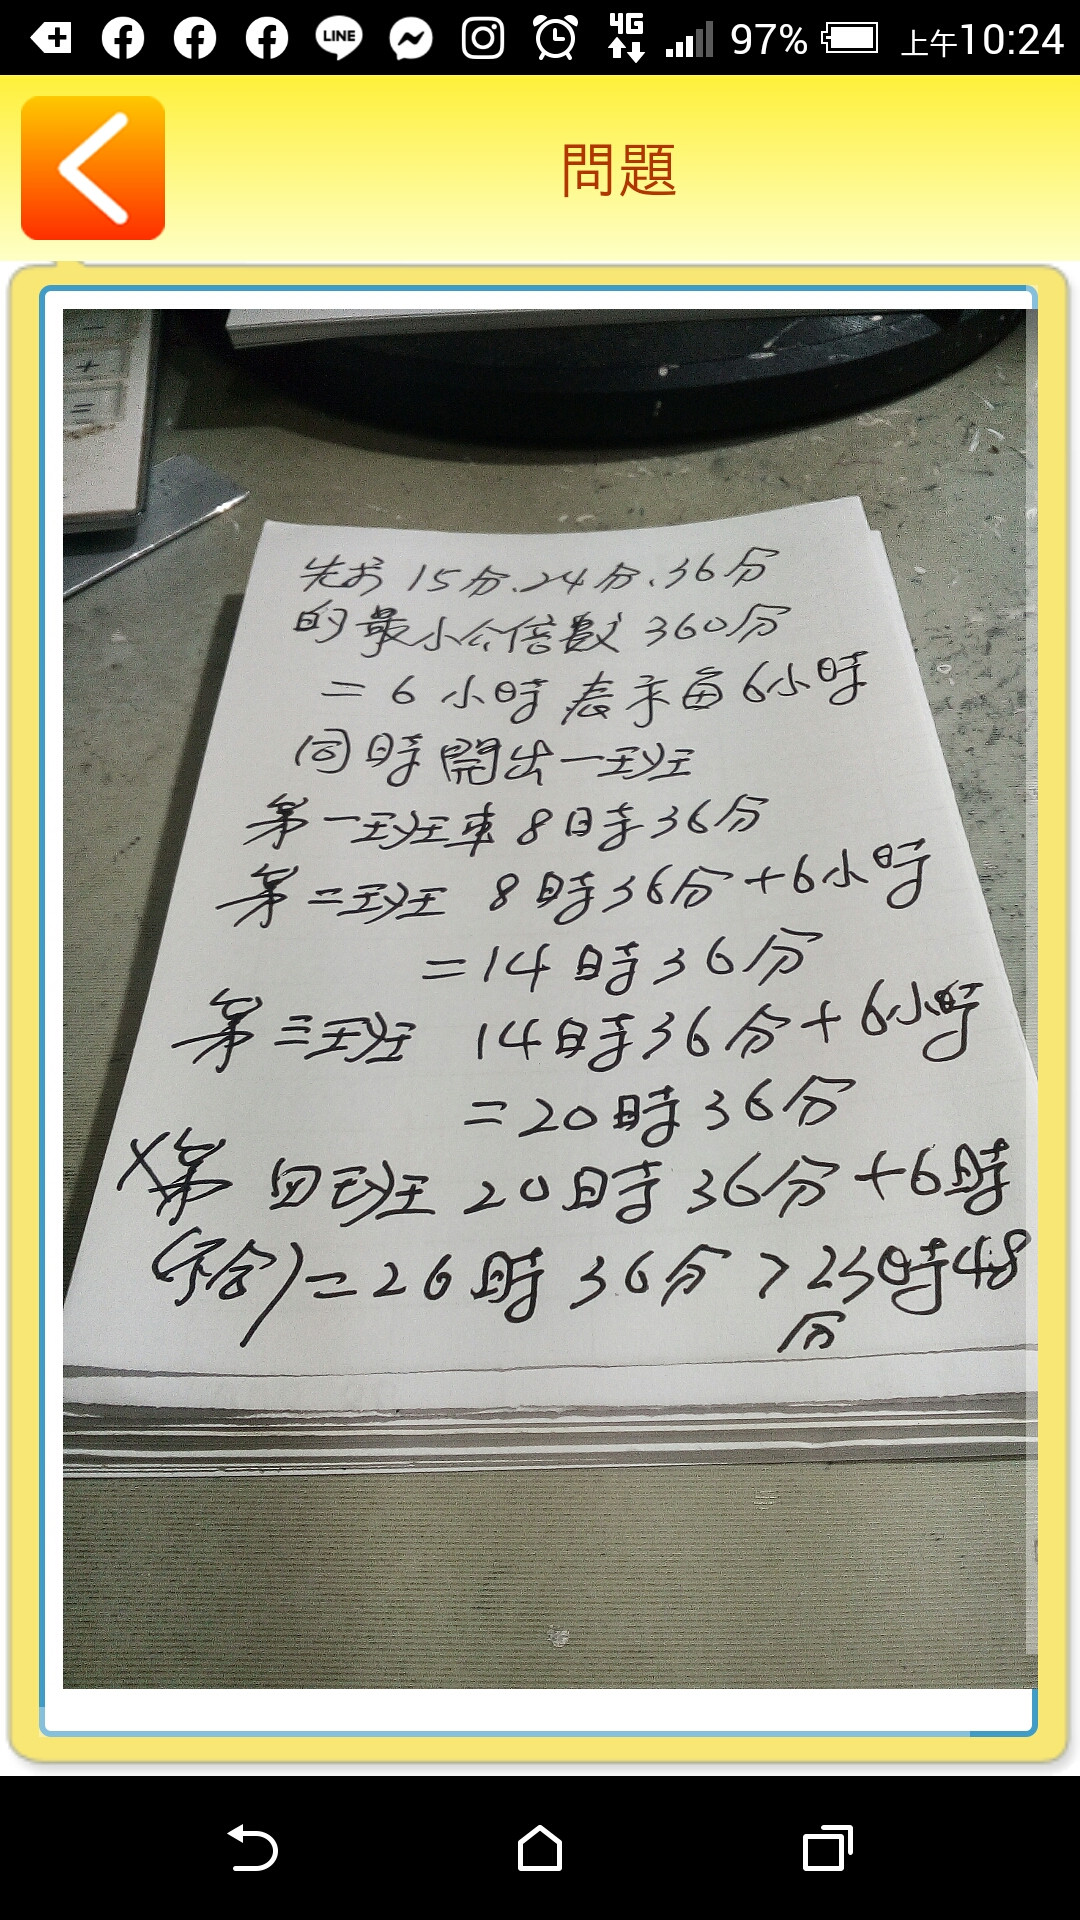 LINE
4G
97%
上午10:24
問題
+
=
先求15分、24分、36分
的最小公倍數 360分
=6小時 表示每6小時
同時開出一班
第一班車8時36分
第二班 8時36分+6小時
=14時36分
第三班 14時36分+6小時
=20時36分
X第四班 20時36分+6時
(不合)=26時36分>23時48
分